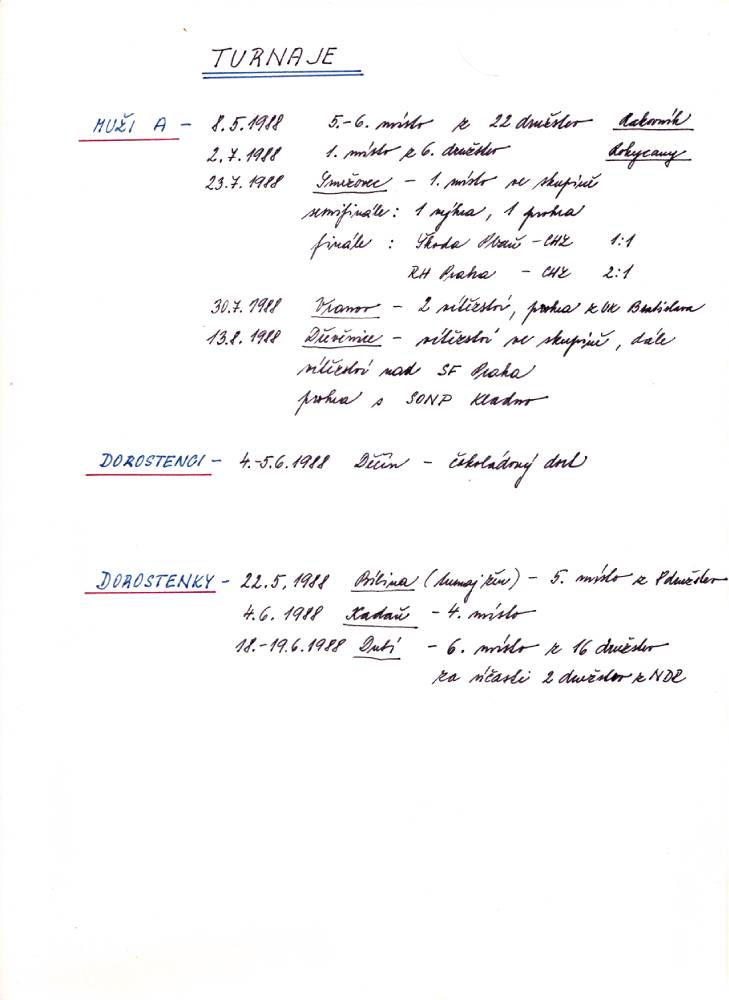 TURNAJE
MUŽI A - 8.5.1988 5.-6. místo z 22 družstev Rakovník
2.7.1988 1. místo z 6. družstev Rokycany
23.7.1988 Smržovec - 1. místo ve skupině
semifinále: 1 výhra, 1 prohra
finále : Škoda Plzeň - CHZ 1:1
RH Praha - CHZ 2:1
30.7.1988 Vranov - 2 vítězství, prohra z UK Bratislava
13.8.1988 Dřevěnice - vítězství ve skupině, dále
vítězství nad SF Praha
prohra s SONP Kladno
DOROSTENCI - 4.-5.6.1988 Děčín - čokoládový dort
DOROSTENKY - 22.5.1988 Bílina (turnaj žen) - 5. místo z 8 družstev
4.6.1988 Kadaň - 4. místo
18.-19.6.1988 Dubí - 6. místo z 16 družstev
za účasti 2 družstev z NDR